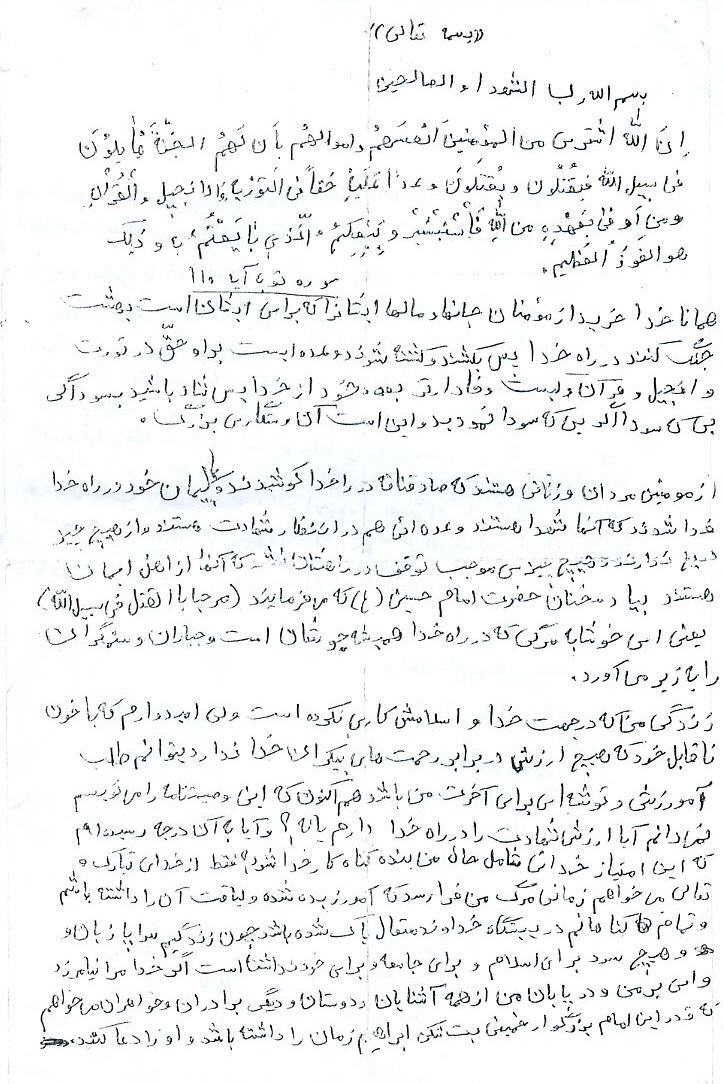 «بسمه تعالی»
بسم الله رب الشهداء و الصالحین
اِنَّ اللهَ اشتری من المؤمِنینَ اَنفُسَهُم و اموالهُم بأَن لَهُمُ الجَنَّةَ یُقاتِلوُنَ
فی سبیل اللهِ فَیَقتُلُون و یُقتَلونَ وعداً عَلَیهِ حَقاً فی التَوریةِ و الانجیل و القُرآنِ
و من اَوفی بِعَهدِهِ مِن اللهِ فَاستَبشِروُ بِبَیعِکُم الَّذی بایَعتُم بِه و ذلِکَ
هو الفَوزُ العَظیم.
سوره توبه آیه 111
همانا خدا خریدار از مؤمنان جانها و مالها ایشانرا که برای ایشان است بهشت
جنگ کنند در راه خدا پس بکشند و کشته شوند وعده است براه حقّ در تورت
و انجیل و قرآن و کیست وفادارتر بعهد خود از خدا پس شاد باشید بسوداگی
که سودا نمودید و این است آن رستگاری بزرگ.
از مومنین مردان و زنانی هستند که صادقانه در راه خدا کوشیدند و با پیمان خود در راه خدا
فدا شدند که آنها شهدا هستند و عده ائی هم در انتظار شهادت هستند و از هیچ چیز
دریغ ندارند و هیچ چیزی موجب توقف در راهشان نشد که آنها از اهل ایمان
هستند بیاد سخنان حضرت امام حسین (ع) که می فرمایند (مرحبا بالقتل فی سبیل الله)
یعنی ای خوشا به مرگی که در راه خدا همیشه جوشان است و جباران و ستمگران
را به زیر می آورد.
زندگی من که در جهت خدا و اسلامش کاری نکرده است ولی امیدوارم که با خون
ناقابل خود که هیچ ارزشی در برابر رحمت های بیکران خدا ندارد بتوانم طلب
آموزشی و توشه ای برای آخرت من باشد هم اکنون که این وصیتنامه را می نویسم
نمیدانم آیا ارزش شهادت را در راه خدا دارم یا نه؟ و آیا به آن درجه رسیده ام
که این امتیاز خدائی شامل حال من بنده گناه کار خدا شود؟ فقط از خدای تبارک و
تعالی می خواهم زمانی مرگ من فرا رسد که آمرزیده شده و لیاقت آن را داشته باشم
و تمام گناهانم در پیشگاه خداوند متعال پاک شده باشد چون زندگیم سراپا زیان و
و هیچ سود برای اسلام و برای جامعه و برای خود نداشتا است اگر خدا مرا نیامرزد
وای بر من و در پایان من از همه آشنایان و دوستان و دیگر برادران و خواهران می خواهم
که قدر این امام بزرگوار خمینی بت شکن ابراهیم زمان را داشته باشد و او را دعا کنند.